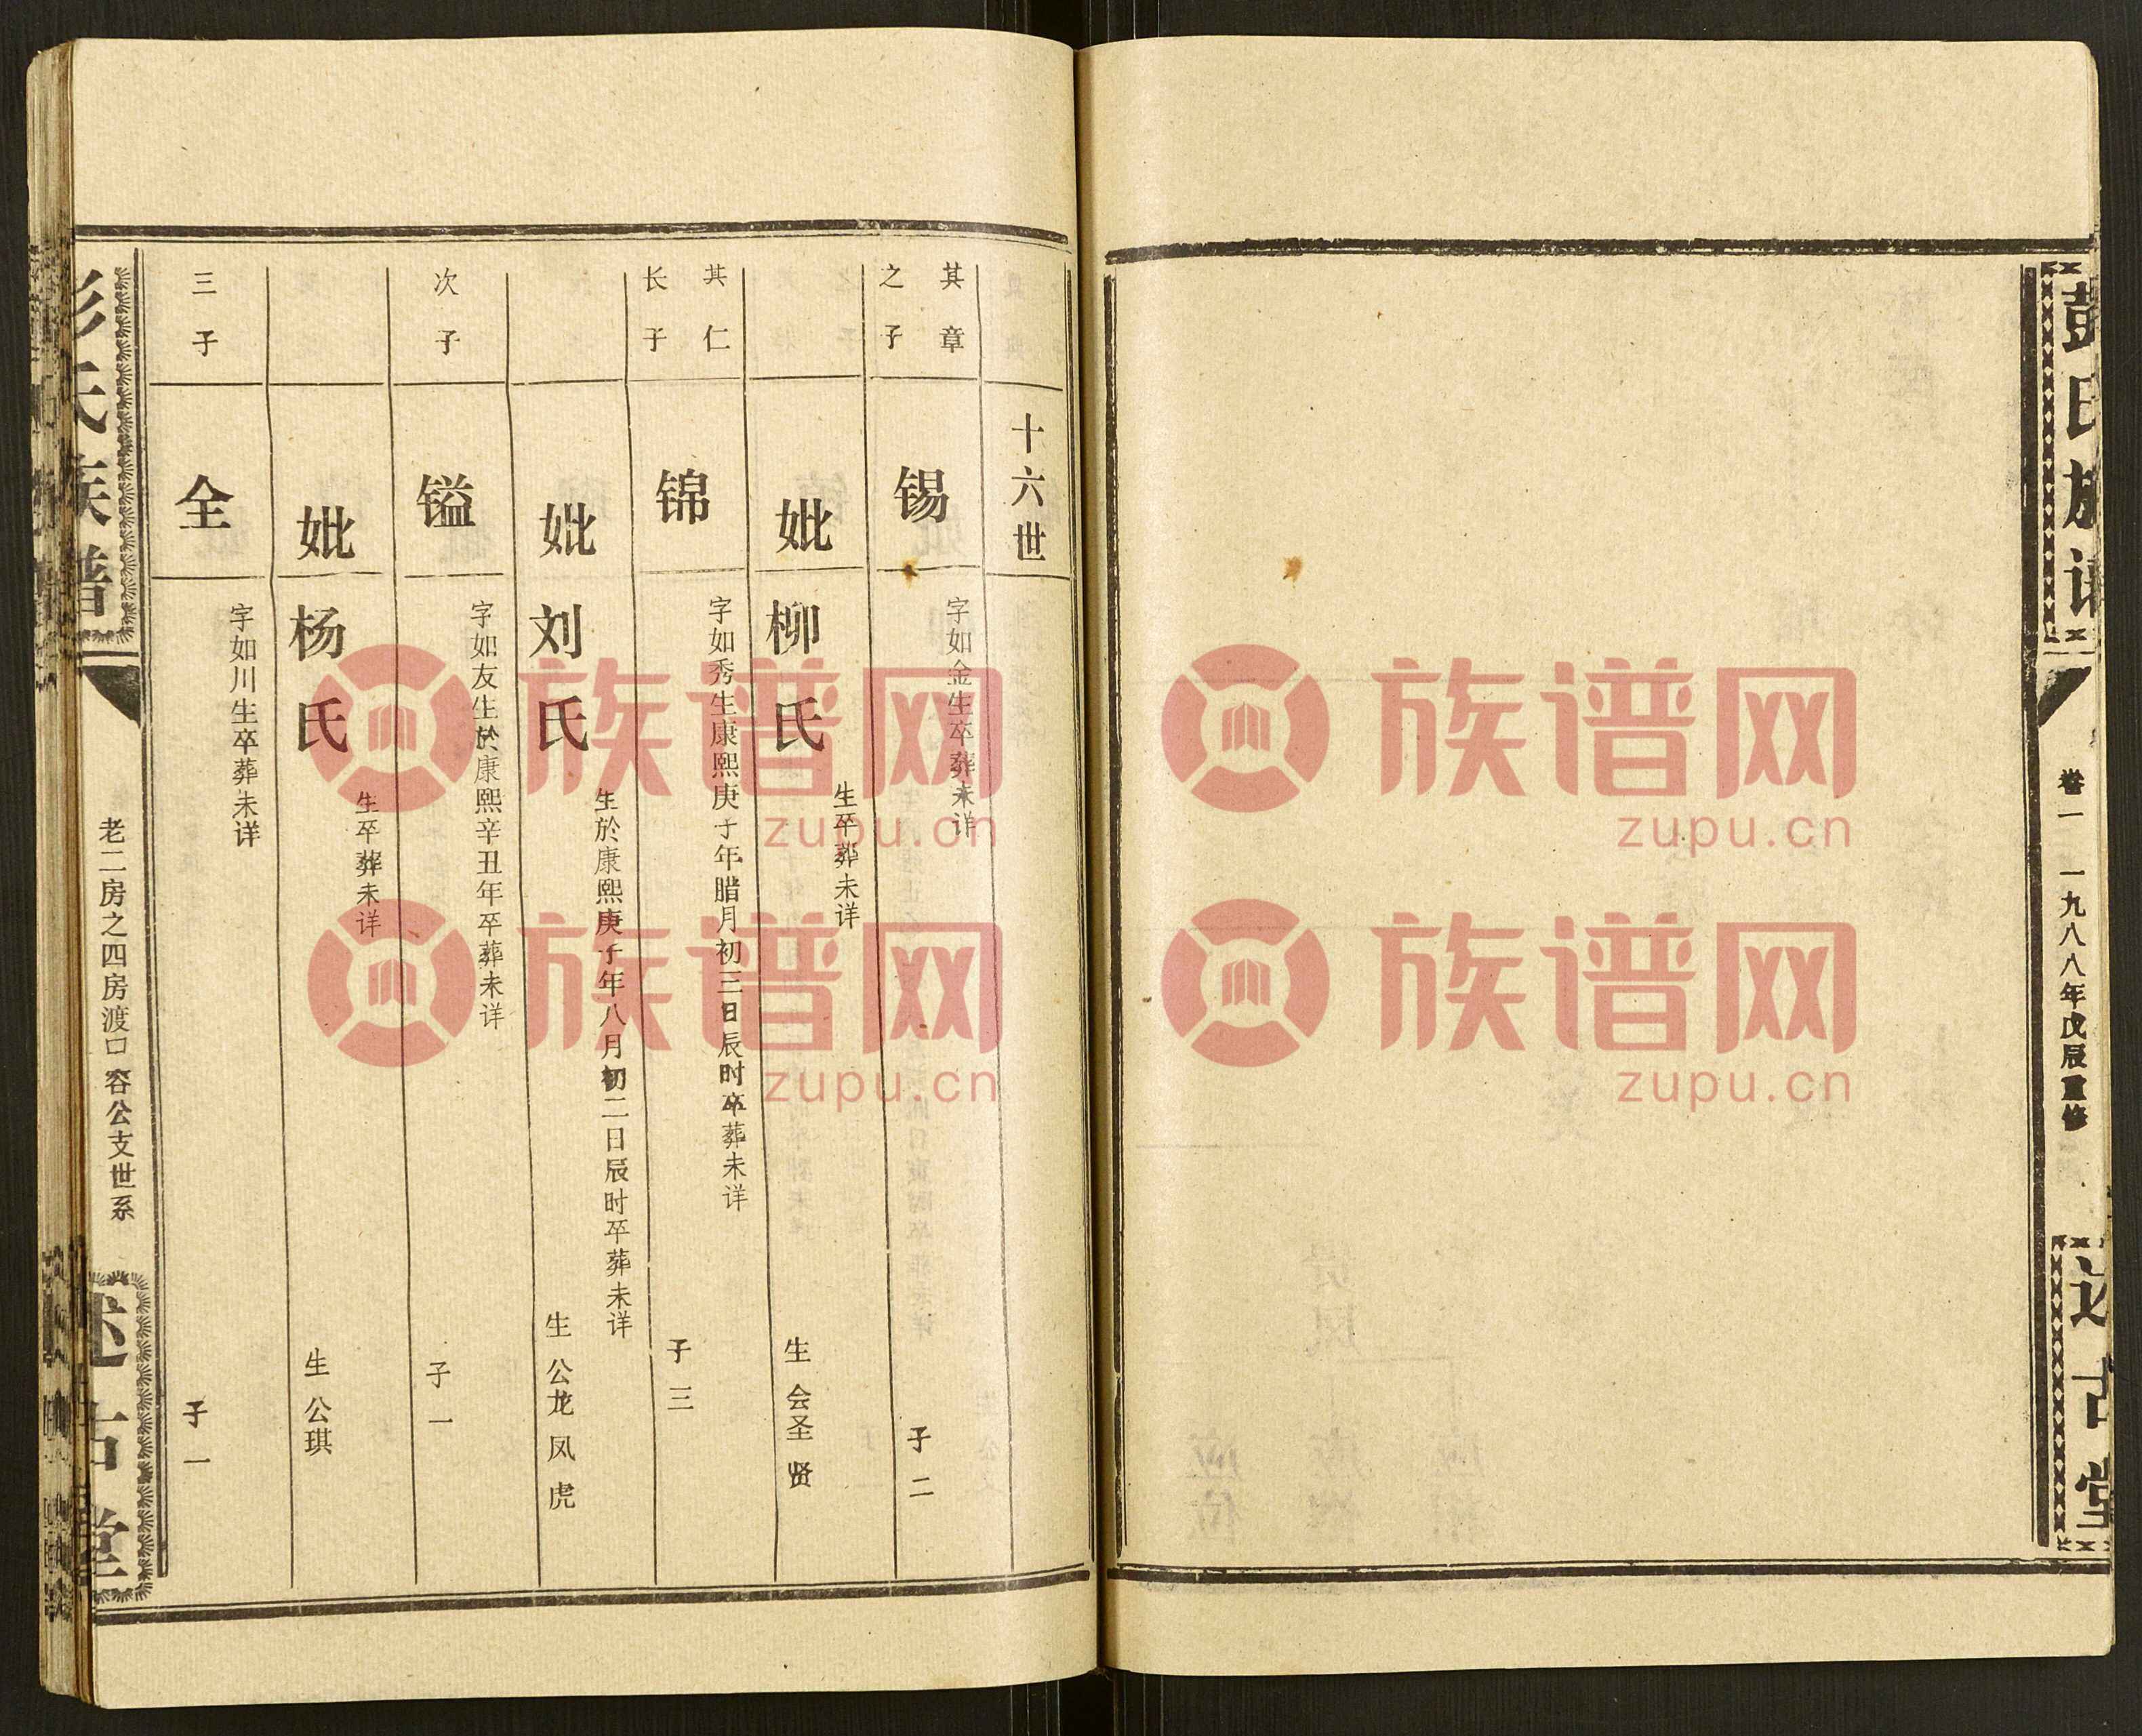 彭氏族谱
卷一
一九八八年戊辰重修
述古堂
十六世
其章
之子
锡
字如金生卒葬未详
子二
妣柳氏
生卒葬未详
生会圣贤
其仁
长子
锦
字如秀生康熙庚子年腊月初三日辰时卒葬未详
子三
妣刘氏
生於康熙庚子年八月初二日辰时卒葬未详
生公龙凤虎
次子
镒
字如友生於康熙辛丑年卒葬未详
子一
妣杨氏
生卒葬未详
生公琪
三子
全
字如川生卒葬未详
子一
彭氏族谱
老二房之四房渡口容公支世系
述古堂
族谱网
zupu.cn
族谱网
zupu.cn
族谱网
zupu.cn
族谱网
zupu.cn